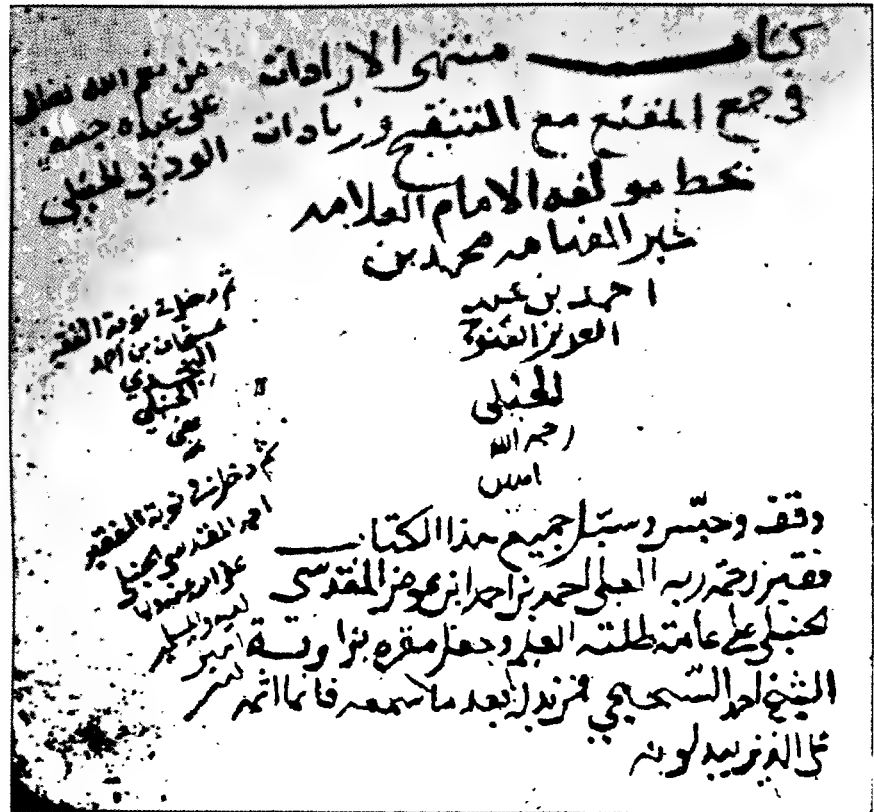 كتاب منتهى الارادات
في جمع المقنع مع التنقيح وزيادات
بخط مولفه الامام العلامه
محمد بن
احمد بن عبد
العزيز الفتوحي
الحنبلي
رحمه الله
امين
من نعم الله تعالى
على عبده
الحنبلي
ثم دخل في نوبة الفقير
عثمان بن احمد
النجدي
الحنبلي
ثم دخل في نوبة الفقير
احمد المقدسي الحنبلي
وقف وحبس وسبل جميع هذا الكتاب
فقير رحمة ربه العلي احمد بن احمد ابن عوض المقدسي
الحنبلي على عامة طلبة العلم وجعل مقره بزاوية
الشيخ احمد فمن بدله بعد ما سمعه فانما اثمه
على الذين يبدلونه